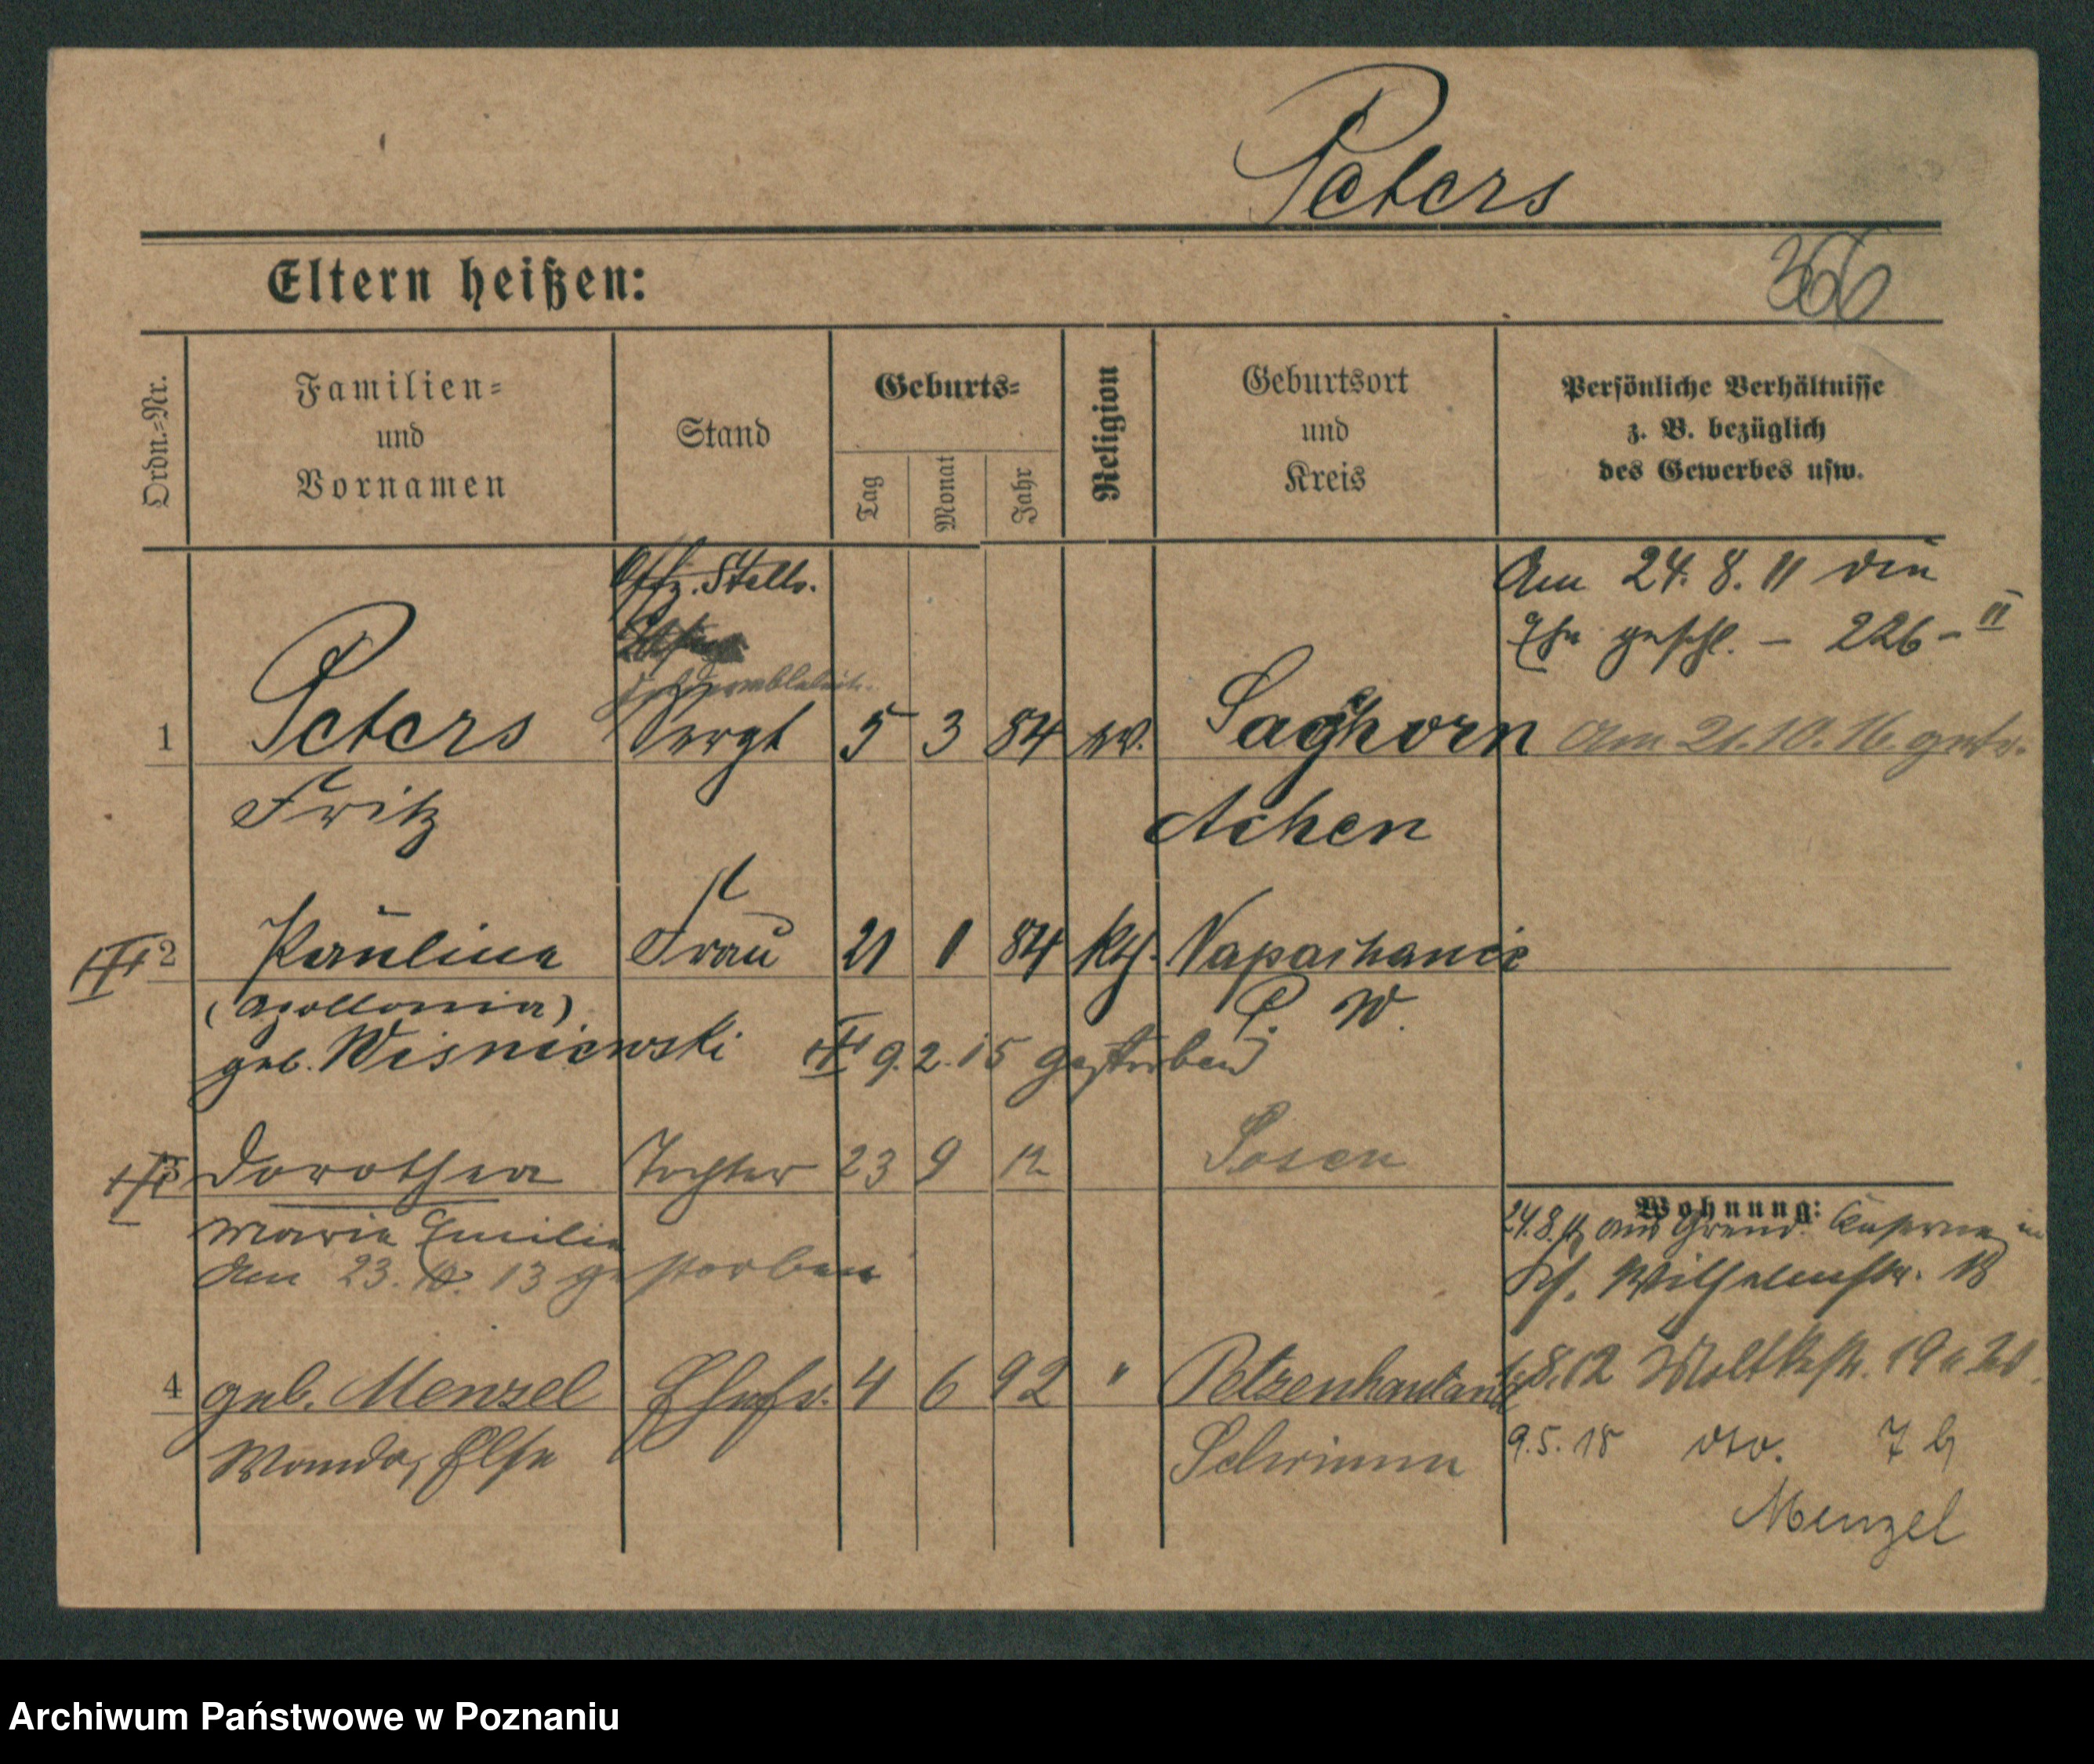 Peters
Eltern heißen:
366
Ordn.-Nr.
Familien-
und
Vornamen
Stand
Geburts-
Tag
Monat
Jahr
Religion
Geburtsort
und
Kreis
Persönliche Verhältnisse
z. B. bezüglich
des Gewerbes usw.
Offz. Stellv.
Am 24. 8. 11 die
Ehe geschl. – 226 – II
1 Peters Sergt 5 3 84 ev. Sagehorn Am 21.10.16. getr.
Fritz Achen
2 Pauline Frau 21 1 84 kth.
(Apollonia) P. W.
geb. Wisniewski 9. 2. 15 gestorben
3 Dorothea Tochter 23 9 12 Posen
Marie Emilie
Am 23. 10. 13 gestorben
Wohnung:
24.8.11 aus Kaserne in
Wilhelmstr. 18
4 geb. Menzel Ehefr. 4 6 92 "
Wanda, Else Schrimm
8.12 Moltkestr. 19
9.5.18 dto. 7 b
Menzel
Archiwum Państwowe w Poznaniu